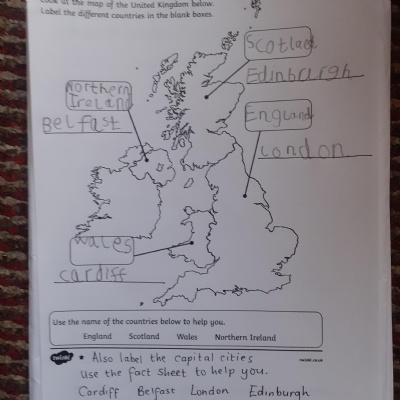 Look at the map of the United Kingdom below.
Label the different countries in the blank boxes.
Scotland
Edinburgh
Northern
Ireland
Belfast
England
London
Wales
Cardiff
Use the name of the countries below to help you.
England Scotland Wales Northern Ireland
twinkl
twinkl.co.uk
* Also label the capital cities
Use the fact sheet to help you.
Cardiff Belfast London Edinburgh